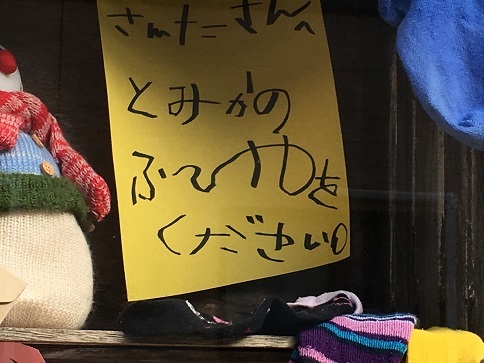 さんたこさんへ
とみかの
ふひやを
ください